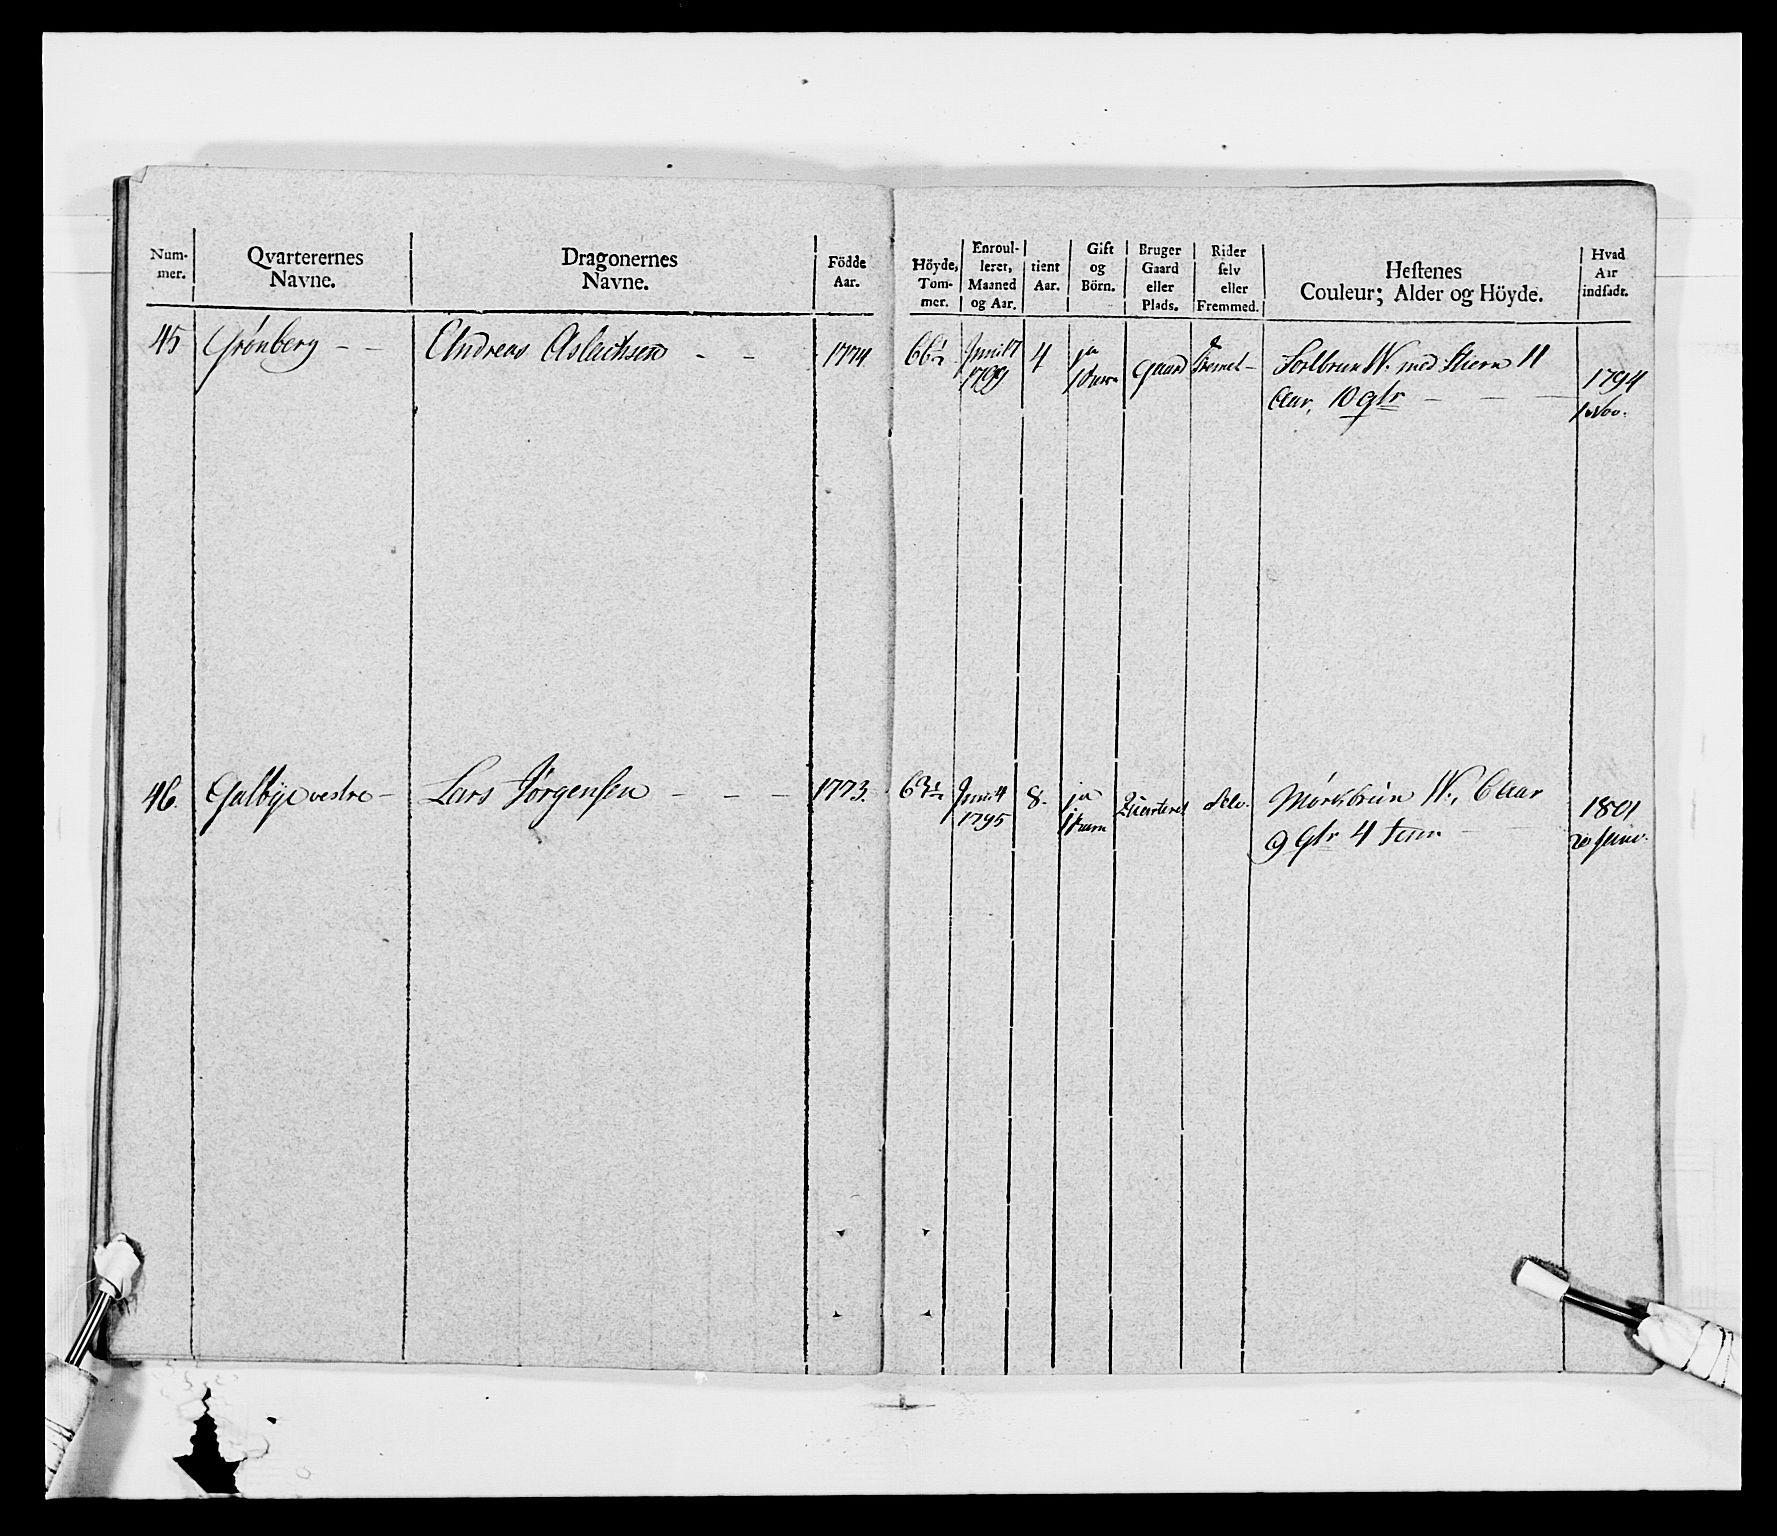 Num-
mer.
Qvarterernes
Navne.
Dragonernes
Navne.
Födde
Aar.
Höyde,
Tom-
mer.
Enroul-
leret,
Maaned
og Aar.
tient
Aar.
Gift
og
Börn.
Bruger
Gaard
eller
Plads.
Rider
selv
eller
Fremmed.
Hestenes
Couleur; Alder og Höyde.
Hvad
Aar
indsadt.
45 Grönberg - - Andreas Aslachsen - - 1774 66½ 1799 4 ja gaard med Stiern 11
Aar, 10 qtr - - - 1794
1 Nov.
46. Galbye vestre - Lars Jörgensen - - - 1773. 1795 8. ja Qvarteret Selv. Mörkbrun W., 6 Aar
9 qtr 4 tom 1801
20 Juni